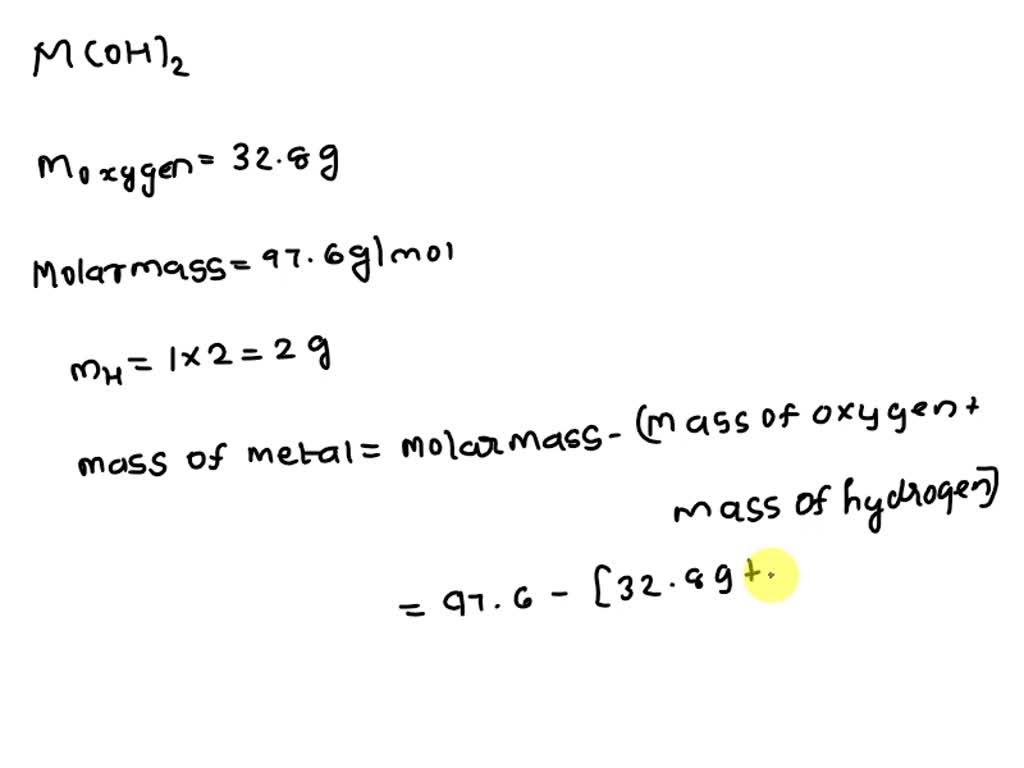 M(OH)2
moxygen= 32.8g
Molarmass= 97.6g|mol
mH= 1×2=2 g
mass of metal= molarmass-(mass of oxygen+
mass of hydrogen]
= 97.6 - [32.8g+.